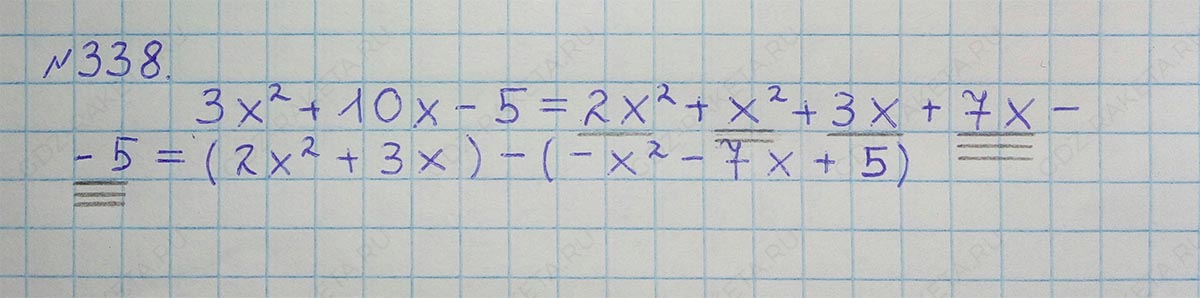 №338.
3x² + 10x - 5 = 2x² + x² + 3x + 7x -
- 5 = (2x² + 3x) - (-x² - 7x + 5)